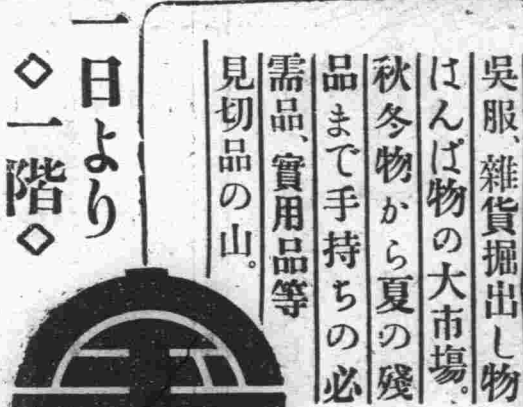 呉服、雜貨掘出し物
はんぱ物の大市場。
秋冬物から夏の殘
品まで手持ちの必
需品、實用品等
見切品の山。
一日より
◇一階◇